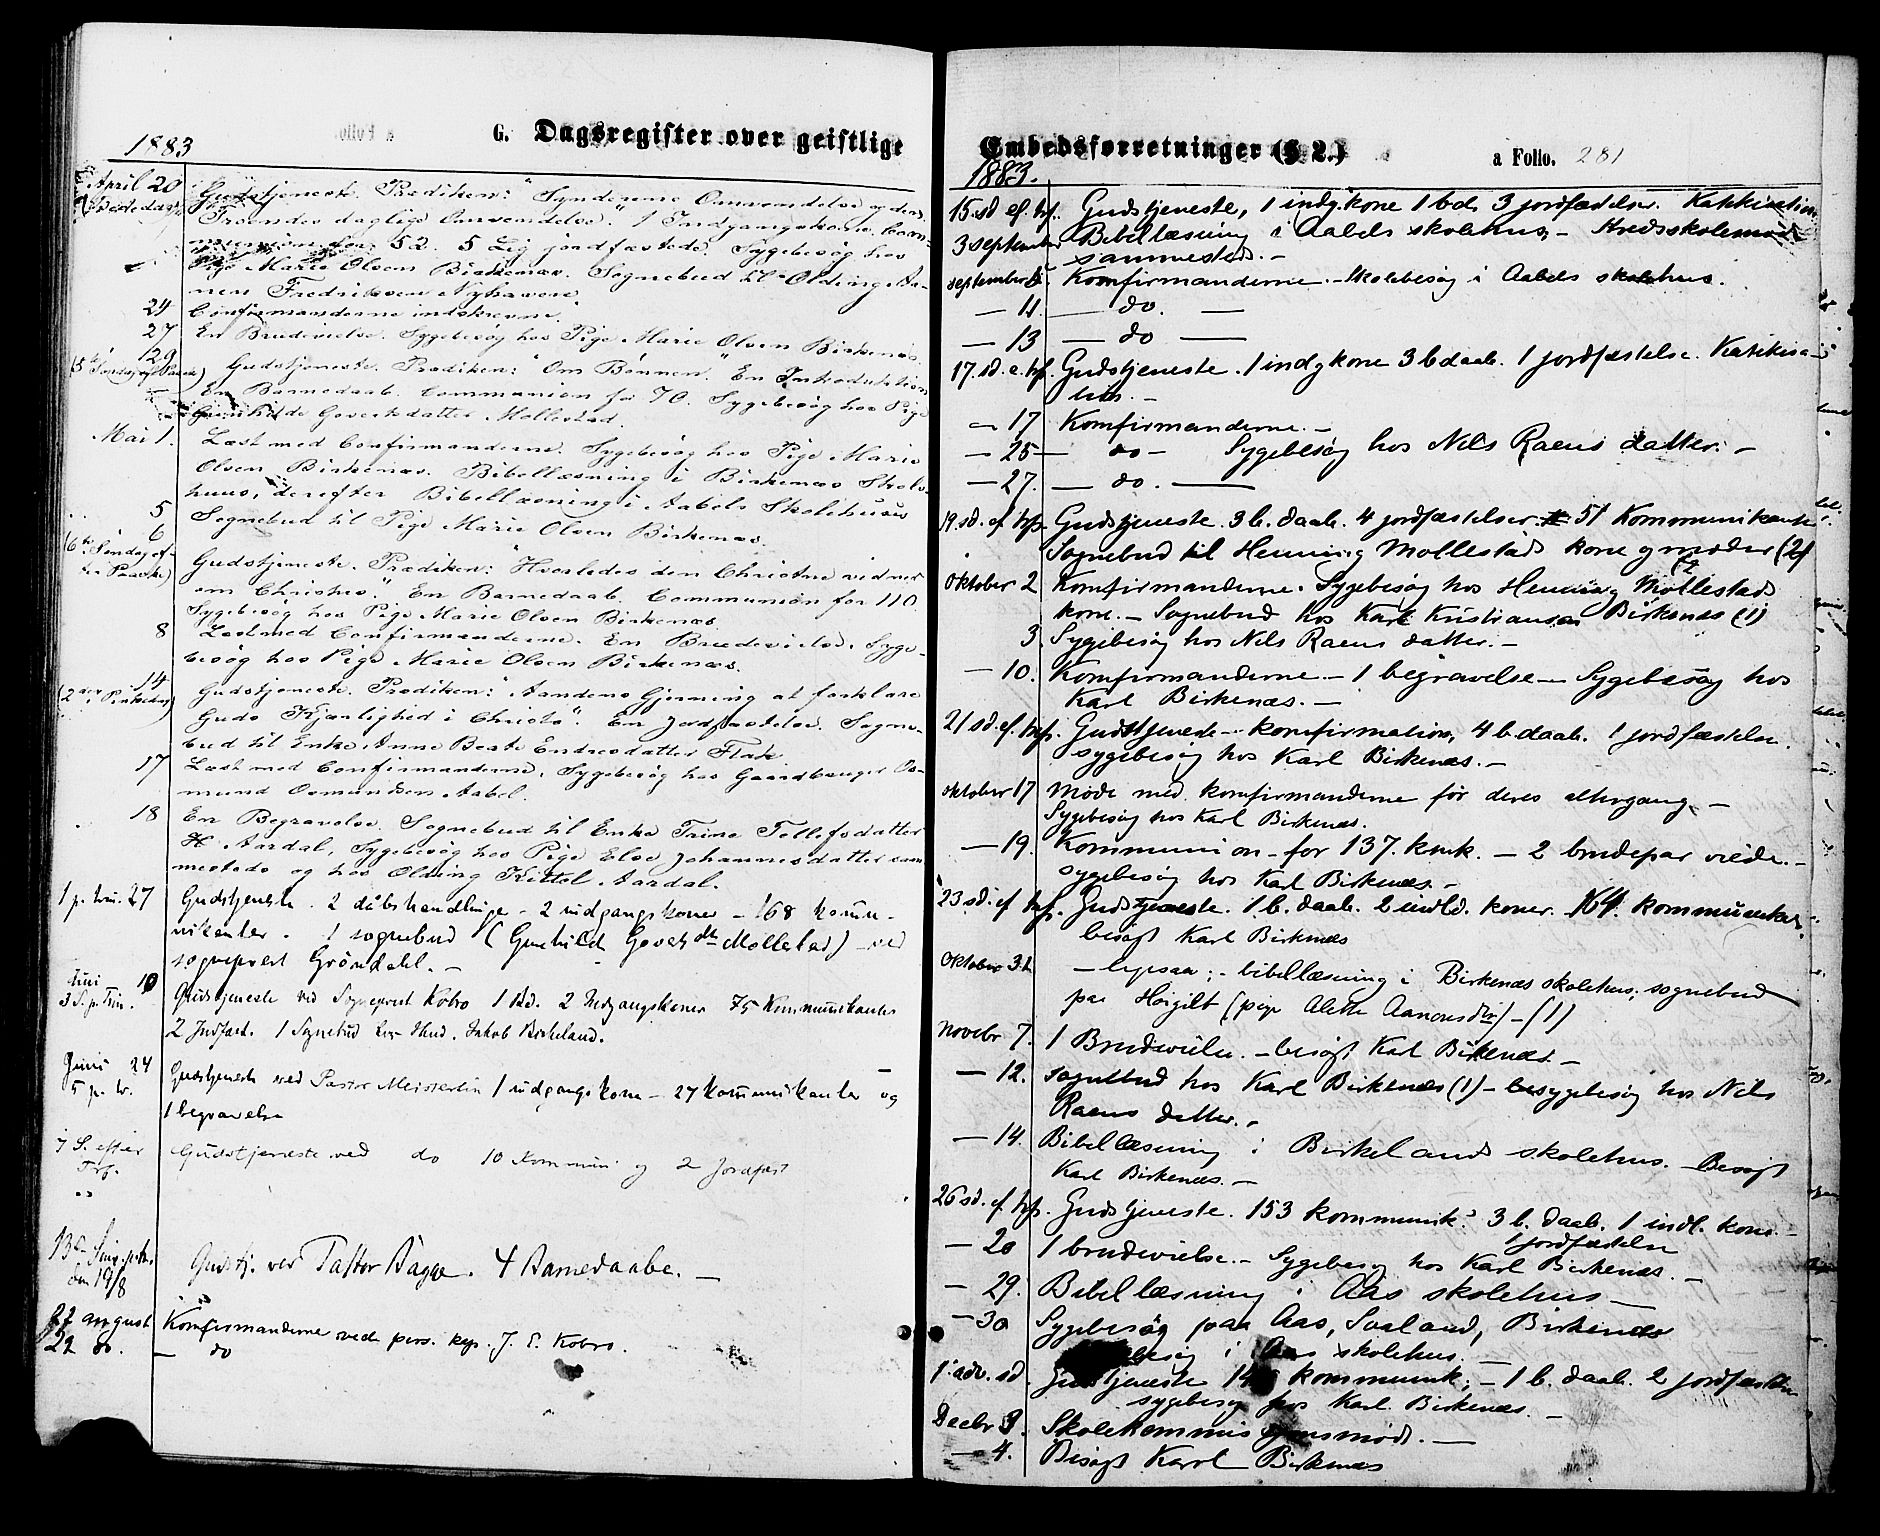 G. Dagsregister over geistlige
1883
April 20 Gudstjeneste. Prædiken: "Syndernes Omvendelse og den
(Bededag) Troendes daglige Omvendelse." 1 Indgangskone. Com-
munion for 52. 5 Lig jordfæstede. Sygebesøg hos
Pige Marie Olsen Birkenæs. Sognebud til Olding Aa-
nen Fredriksen Nyhavene.
24 Confirmanderne indskrevne.
27 En Brudevielse. Sygebesøg hos Pige Marie Olsen Birkenæs.
29 Gudstjeneste. Prædiken: "Om Bønnen." En Introduktion
(5te Søndag ef. Paaske) En Barnedaab. Communion for 70. Sygebesøg hos Pige
Gunhilde Govertsdatter Mollestad.
Mai 1. Læst med Confirmanderne. Sygebesøg hos Pige Marie
Olsen Birkenæs. Bibellæsning i Birkenæs Skole-
huus, derefter Bibellæsning i Aabels Skolehuus
5 Sognebud til Pige Marie Olsen Birkenæs.
6 Gudstjeneste. Prædiken: "Hvorledes den Christne vidner
(6te Søndag ef-
ter Paaske) om Christus". En Barnedaab. Communion for 110.
Sygebesøg hos Pige Marie Olsen Birkenæs
8 Læst med Confirmanderne. En Brudevielse. Syge-
besøg hos Pige Marie Olsen Birkenæs.
14 Gudstjeneste. Prædiken: "Aandens Gjerning at forklare
(2den Pinkedag) Guds Kjærlighed i Christo". En Jordfæstelse. Sogne-
bud til Enke Anne Beate Endresdatter Flak.
17 Læst med Confirmanderne, Sygebesøg hos Gaardbruger Os-
mund Osmundsen Aabel.
18 En Begravelse. Sognebud til Enke Trine Tellefsdatter
Aardal, Sygebesøg hos Pige Else Johannesdatter sam-
mesteds og hos Olding Kittel Aardal.
1 p. trin. 27 Gudstjeneste. 2 dåbshandlinger - 2 indgangskoner - 168 kommu-
nikanter. 1 sognebud (Gunhild Goverts dtr Mollestad) - ved
sogneprest Grøndahl. -
Juni 10 Gudstjeneste ved Sogneprest Kobro 1 Bd. 2 Indgangskoner 75 Kommunikanter
3 S. p. Trin. 2 Jordfæst. 1 Sognebud Jakob Birkeland.
Juni 24 Gudstjeneste ved Pastor Meisterlin 1 indgangskone - 27 kommunikanter og
5 p. tr. 1 begravelse
7 S. efter Gudstjeneste ved do 10 Kommuni og 2 Jordfæst
Trf.
13de Sønd. p. tr. Gudstj. ved Pastor Bagge. 4 Barnedaabe. -
den 19/8
22 august Komfirmanderne ved pers. kap. J. E. Kobro.
29 do. - do
Embedsforretninger (§ 2.)
a Folio. 281
1883.
15. sd ef. trf. Gudstjeneste, 1 indg. kone 1 bd. 3 jordfæstelser. Katekisation
3 september Bibellæsning i Aabels skolehus, - Kredsskolemøde
sammesteds. -
september 6 Komfirmanderne. - Skolebesøg i Aabels skolehus.
- 11 - do. -
- 13 - do -
17. sd. e. trf. Gudstjeneste. 1 indg kone 3 b daab. 1 jordfæstelse. Katekisa-
tion. -
- 17 Komfirmanderne. -
- 25 - do - Sygebesøg hos Nils Raens datter. -
- 27. - do. -
19. sd. ef. trf. Gudstjeneste. 3 b. daab. 4 jordfæstelser. 51 Kommunikanter
Sognebud til Henning Mollestads kone og moder (2)
Oktober 2 Komfirmanderne. Sygebesøg hos Henning Mollestads
kone. - Sognebud hos Karl Kristiansen Birkenæs (1)
3. Sygebesøg hos Nils Raens datter. -
- 10. Komfirmanderne - 1 begravelse - Sygebesøg hos
Karl Birkenæs. -
21 sd. ef. trf. Gudstjeneste - komfirmation, 4 b. daab. 1 jordfæstelse.
sygebesøg hos Karl Birkenæs. -
oktober 17 Møde med komfirmanderne før deres altergang -
Sygebesøg hos Karl Birkenæs.
- 19. Kommunion - for 137. kmk. - 2 brudepar viede. -
sygebesøg hos Karl Birkenæs. -
23 sd. ef trf. Gudstjeneste. 1 b. daab. 2 indld. koner. 164 kommunikan.
besøgt Karl Birkenæs
Oktober 31 - ligesaa; - bibellæsning i Birkenæs skolehus; sognebud
paa Høigilt (pige Alette Aanons dtr) - (1)
Novebr 7. 1 Brudevielse. - besøgt Karl Birkenæs. -
- 12. sognebud hos Karl Birkenæs (1) - sygebesøg hos Nils
Raens datter. -
- 14. Bibellæsning i Birkelands skolehus. - Besøgt
Karl Birkenæs. -
26 sd. ef. trf. Gudstjeneste. 153 kommunik. 3 b. daab. 1 indl. kone -
1 jordfæstelse
- 20 1 brudevielse. - Sygebesøg hos Karl Birkenæs. -
- 29. Bibellæsning i Aas skolehus -
- 30 Sygebesøg paa Aas, Svaland, Birkenæs
i Aas skolehus. -
1. adv. sd. Gudstjeneste kommunik; - 1 b. daab. 2 jordfæstelser
sygebesøg hos Karl Birkenæs. -
Decbr 3. Skolekommissionsmøde. -
- 4. Besøgt Karl Birkenæs